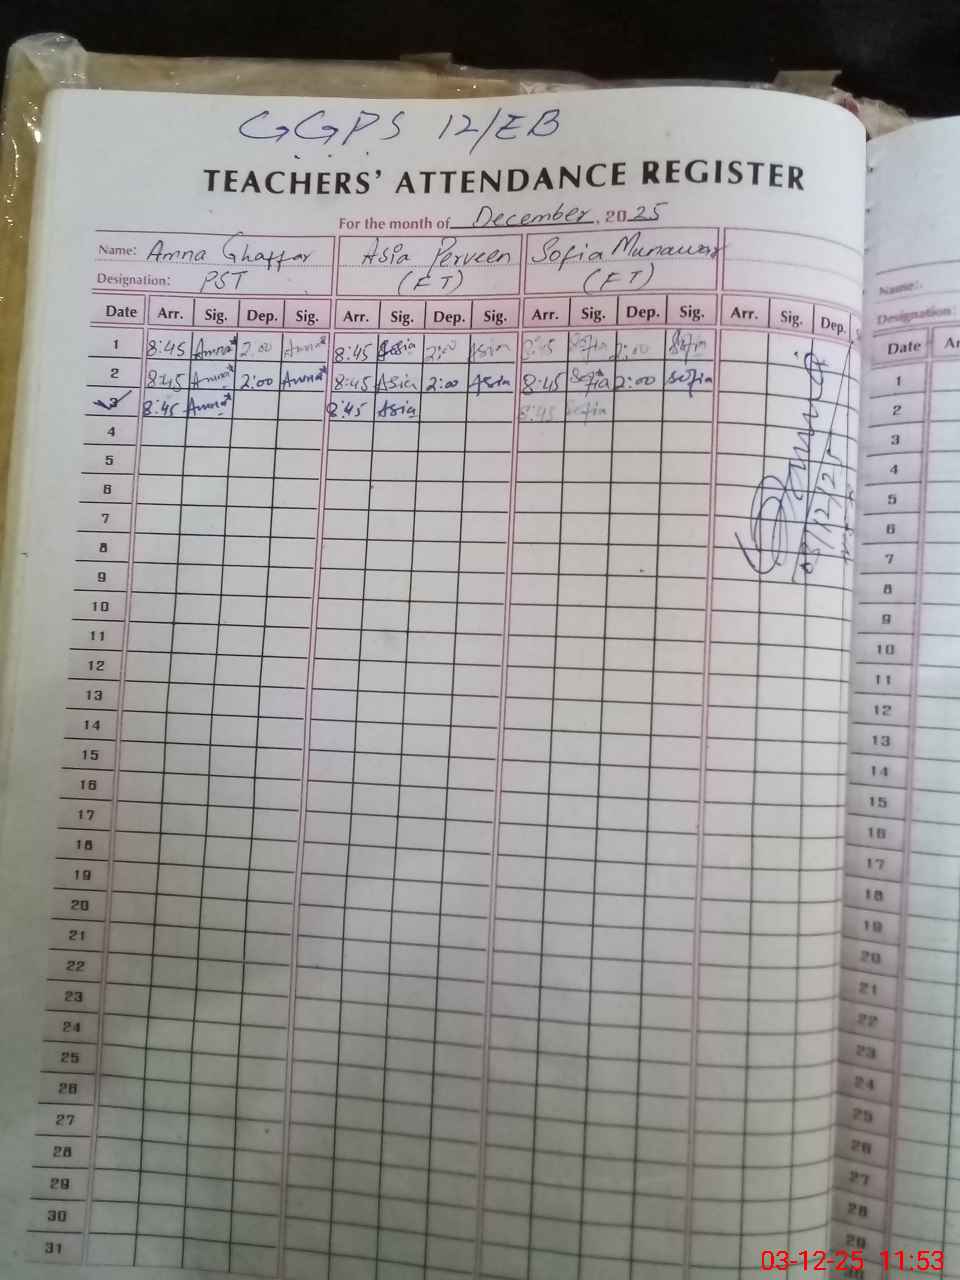 GGPS 12/EB
TEACHERS' ATTENDANCE REGISTER
For the month of December, 2025
Name: Amna Ghaffar Asia Perveen Sofia Munawar
Designation: PST (FT) (FT)
Date Arr. Sig. Dep. Sig. Arr. Sig. Dep. Sig. Arr. Sig. Dep. Sig. Arr. Sig. Dep.
1 8:45 Amna 2:00 Amna 8:45 Asia 2:00 Asia 8:45 Sofia 2:00 Sofia
2 8:45 Amna 2:00 Amna 8:45 Asia 2:00 Asia 8:45 Sofia 2:00 Sofia
3 8:45 Amna 8:45 Asia 8:45 Sofia
4
5
6
7
8
9
10
11
12
13
14
15
16
17
18
19
20
21
22
23
24
25
26
27
28
29
30
31
03/12/25
Name:
Designation:
Date
1
2
3
4
5
6
7
8
9
10
11
12
13
14
15
16
17
18
19
20
21
22
23
24
25
26
27
28
29
03-12-25 11:53